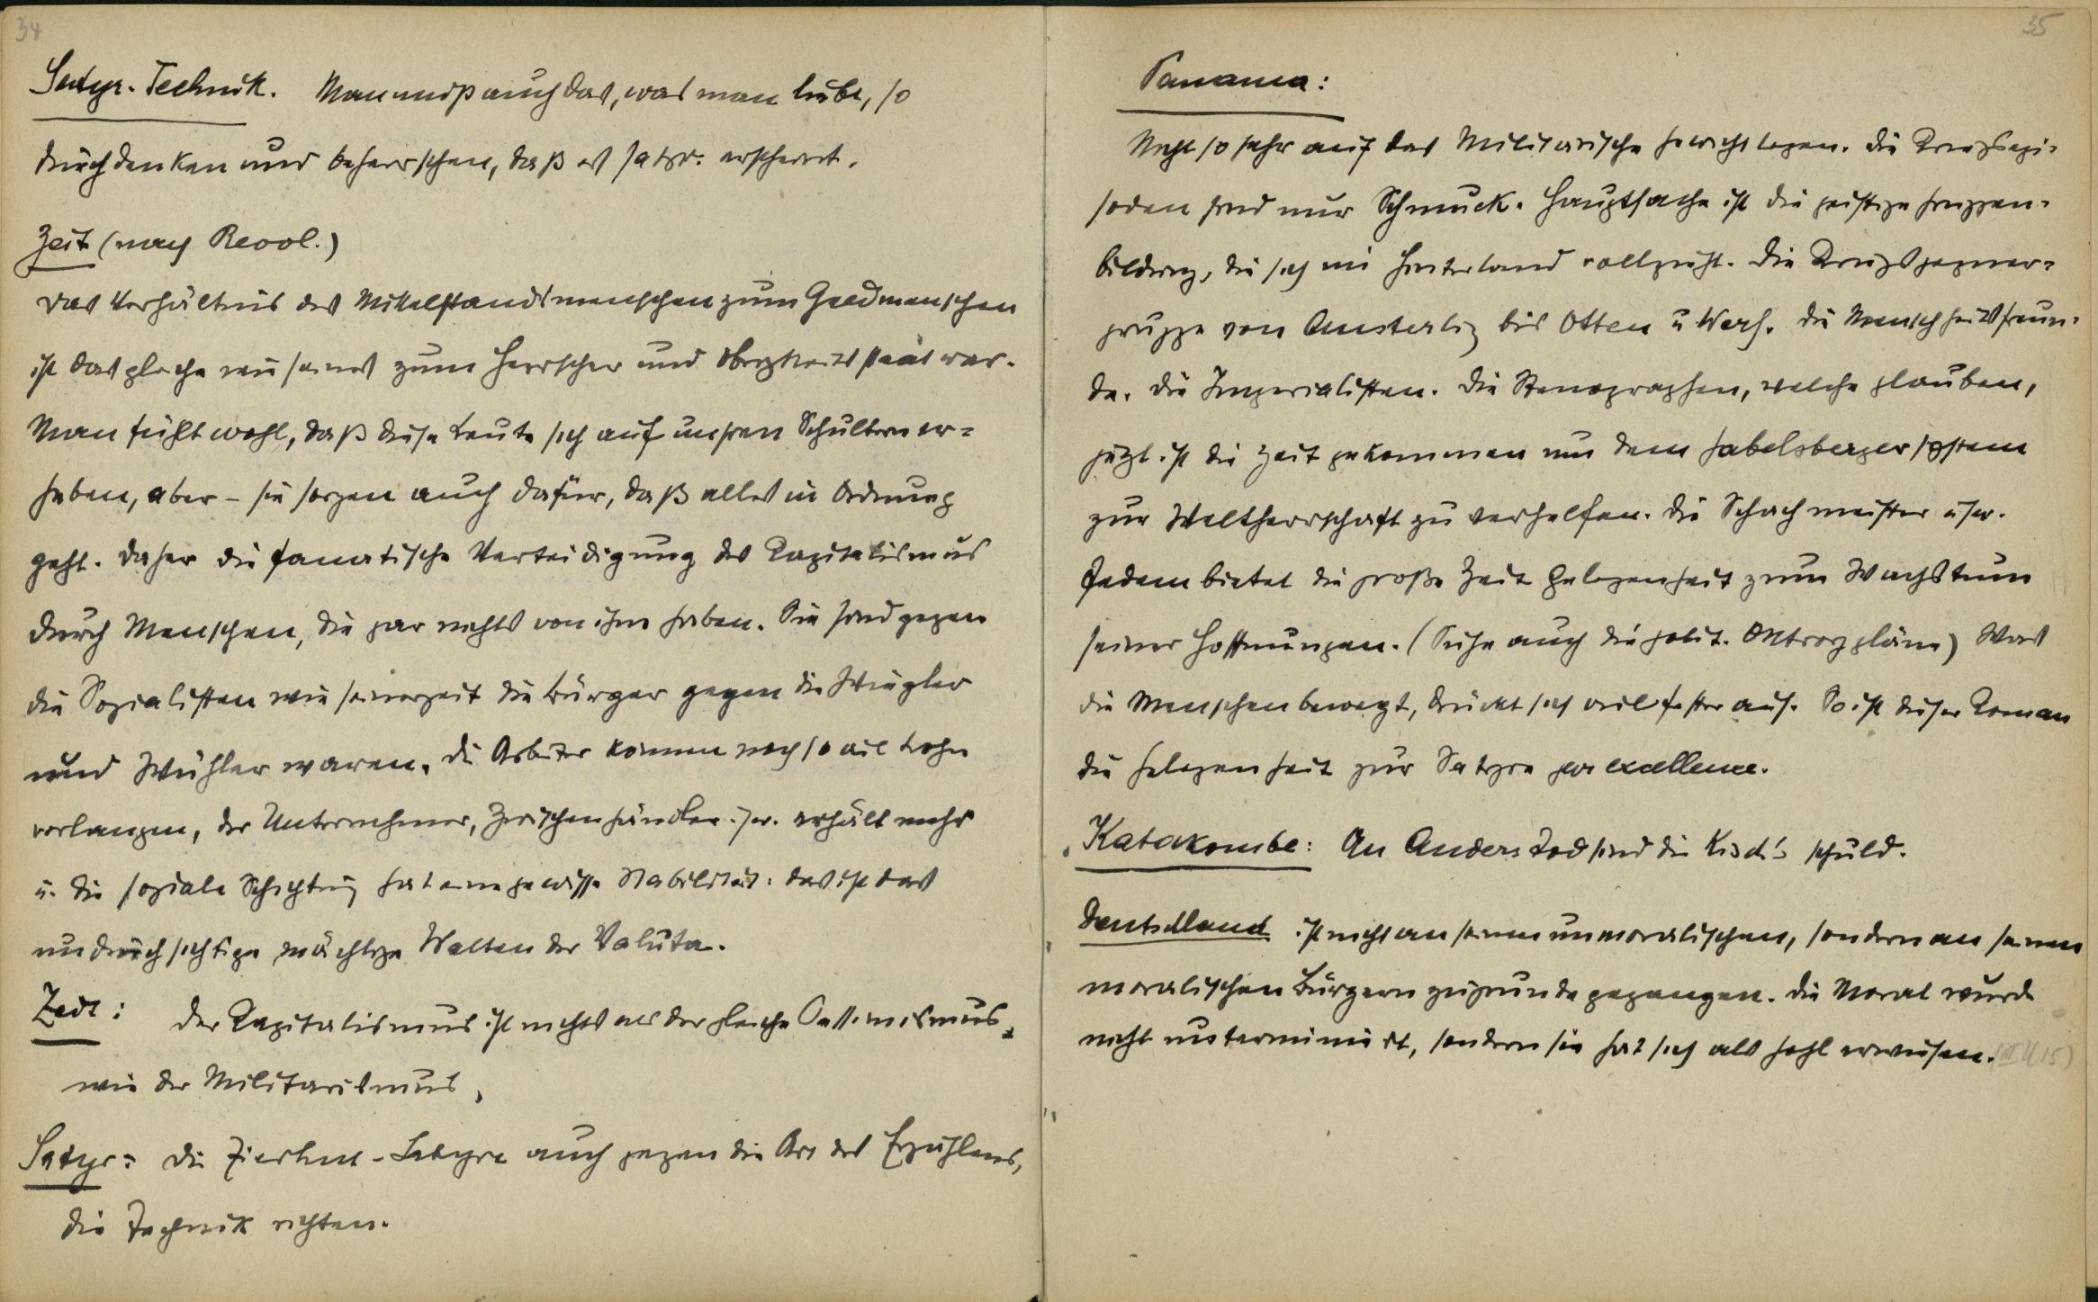 34
Satyr-Technik. Man muß auch das, was man liebt, so
durchdenken und beherrschen, daß es satyr. erscheint.
Zeit (nach Revol.)
Das Verhältnis des Mittelstandsmenschen zum Geldmenschen
ist das gleiche wie seines zum Herrscher und Obrigkeitsstaat war.
Man fühlt wohl, daß diese Leute sich auf unsren Schultern er=
heben, aber – sie sorgen auch dafür, daß alles in Ordnung
geht. Daher die fanatische Verteidigung des Kapitalismus
durch Menschen, die gar nichts von ihm haben. Sie sind gegen
die Sozialisten wie seinerzeit die Bürger gegen die Wiegler
und Wühler waren. Die Arbeiter können noch so viel Lohn
verlangen, der Unternehmer, Zwischenhändler usw. erhält mehr
u. die soziale Schichtung hat eine gewisse Stabilität: das ist das
undurchsichtige mächtige Walten der Valuta.
Zeit: Der Kapitalismus ist nichts als der gleiche Pessimismus,
wie der Militarismus.
Satyr: Die Zierhut-Satyre auch gegen die Art des Erzählens,
die Technik richten.
35
Panama:
Nicht so sehr auf das Militärische Gewicht legen. Die Kriegsepi-
soden sind nur Schmuck. Hauptsache ist die geistige Gruppen-
bildung, die sich im Hinterland vollzieht. Die Kriegsgegner=
gruppe von Austerlitz bis Otten u Werf. Die Menschheitsfreun-
de. Die Imperialisten. Die Stenographen, welche glauben,
jetzt ist die Zeit gekommen um dem Gabelsberger system
zur Weltherrschaft zu verhelfen. Die Schachmeister usw.
Jedem bietet die große Zeit Gelegenheit zum Wachstum
seiner Hoffnungen. (Siehe auch die polit. Oktroypläne) Was
die Menschen bewegt, drückt sich viel fester aus. So ist dieser Roman
die Gelegenheit zur Satyre par excellence.
Katakombe: An Anders Tod sind die Kisch's schuld.
Deutschland ist nicht an seinen unmoralischen, sondern an seinen
moralischen Bürgern zugrunde gegangen. Die Moral wurde
nicht unterminiert, sondern sie hat sich als hohl erwiesen.